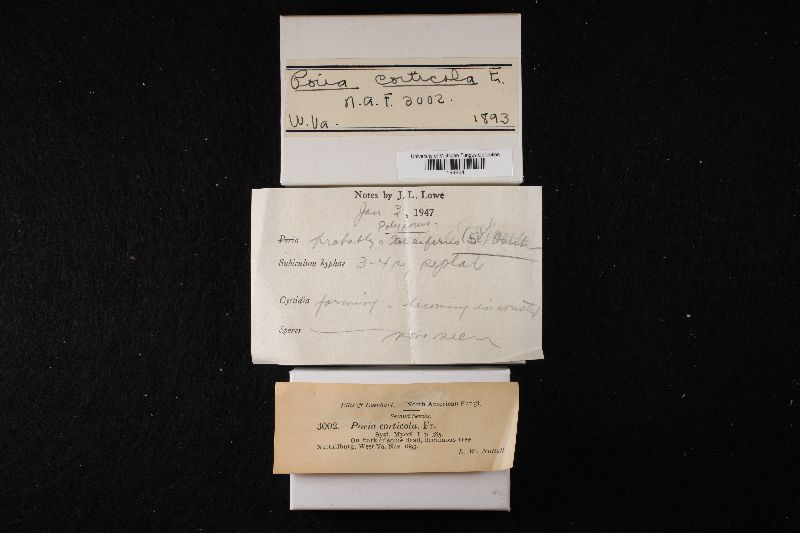 Poria corticola Fr.
N.A.F. 3002.
W. Va. 1893
University of Michigan Fungus Collection
Notes by J. L. Lowe
Jan 3, 1947
Polyporus
Poria probably
Subiculum hyphae 3-4 μ, septate
Cystidia forming - becoming incrusted
Spores none seen
Ellis & Everhart. North American Fungi.
Second Series.
3002. Poria corticola, Fr.
Syst. Mycol. I, p. 385.
On bark of some dead, deciduous tree
Nuttallburg, West Va. Nov. 1893.
L. W. Nuttall